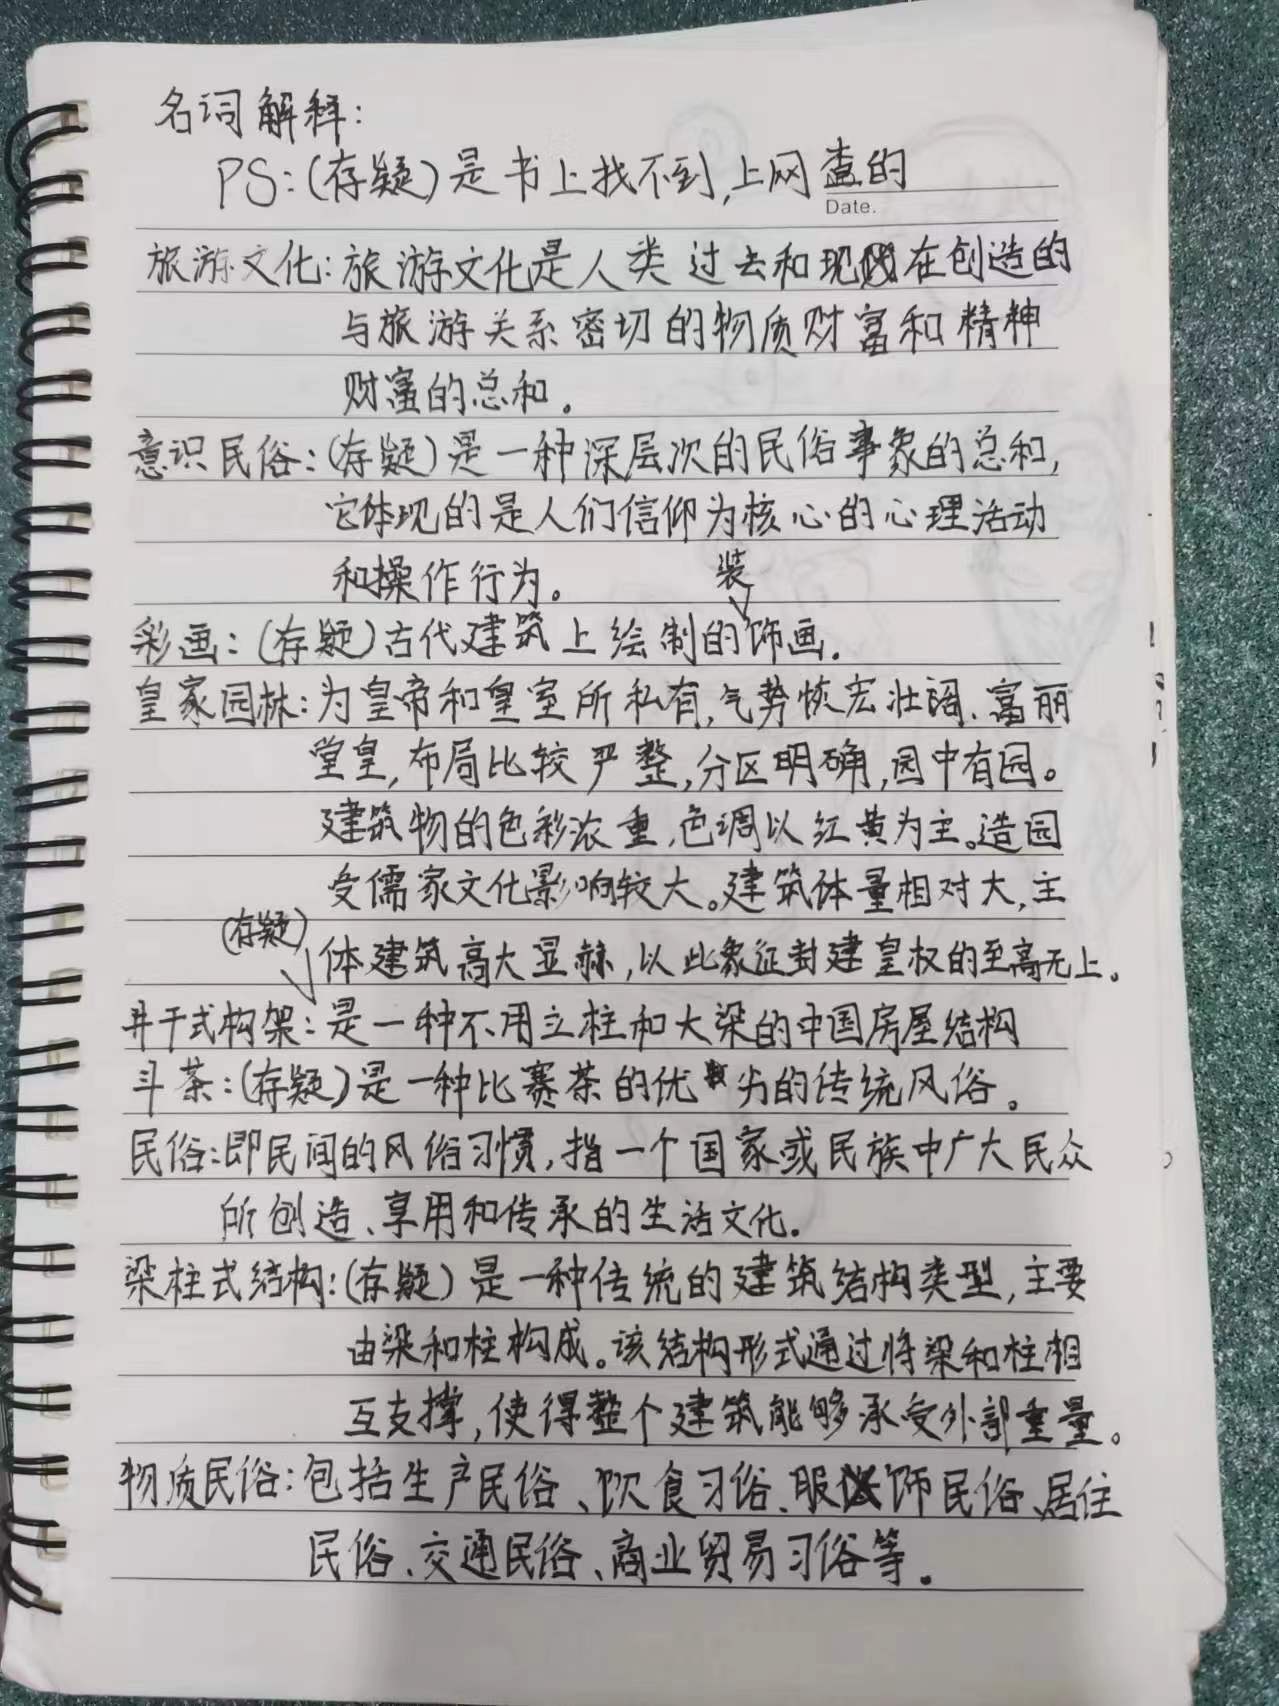 名词解释：
PS：(存疑)是书上找不到,上网查的
Date.
旅游文化：旅游文化是人类过去和现在创造的
与旅游关系密切的物质财富和精神
财富的总和。
意识民俗：(存疑)是一种深层次的民俗事象的总和,
它体现的是人们信仰为核心的心理活动
和操作行为。
彩画：(存疑)古代建筑上绘制的装饰画.
皇家园林：为皇帝和皇室所私有,气势恢宏壮阔、富丽
堂皇,布局比较严整,分区明确,园中有园。
建筑物的色彩浓重,色调以红黄为主。造园
受儒家文化影响较大。建筑体量相对大,主
体建筑高大显赫,以此象征封建皇权的至高无上。
井干式构架：(存疑)是一种不用立柱和大梁的中国房屋结构
斗茶：(存疑)是一种比赛茶的优劣的传统风俗。
民俗：即民间的风俗习惯,指一个国家或民族中广大民众
所创造、享用和传承的生活文化.
梁柱式结构：(存疑)是一种传统的建筑结构类型,主要
由梁和柱构成。该结构形式通过将梁和柱相
互支撑,使得整个建筑能够承受外部重量。
物质民俗：包括生产民俗、饮食习俗、服饰民俗、居住
民俗、交通民俗、商业贸易习俗等.